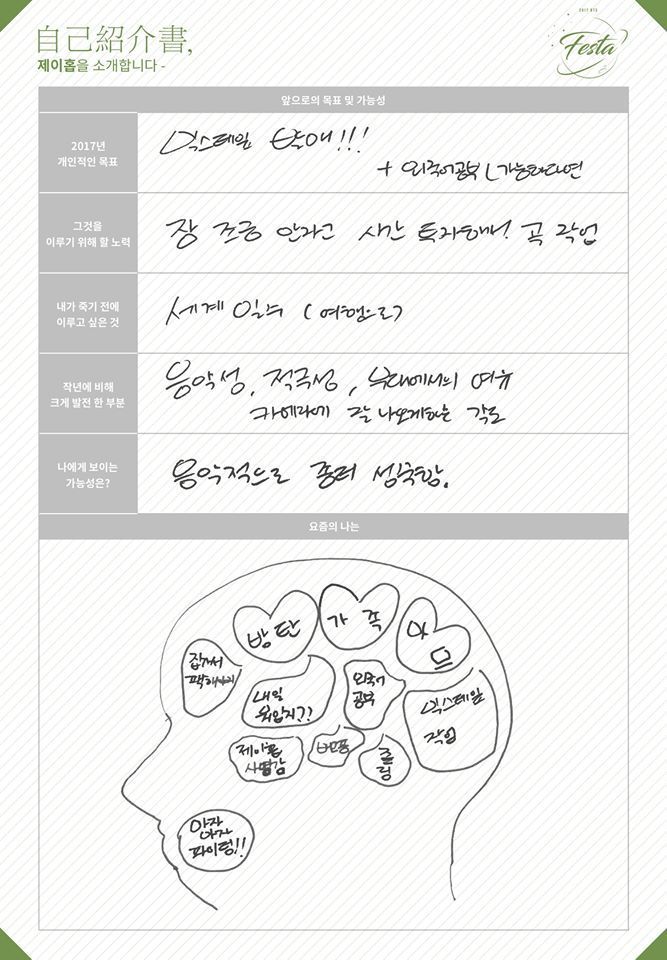 自己紹介書,
제이홉을 소개합니다 -
2017 BTS
Festa
앞으로의 목표 및 가능성
2017년
개인적인 목표
믹스테잎 발매!!!
+ 외국어공부 (가능하다면
그것을
이루기 위해 할 노력
잠 조금 안자고 시간 투자해서! 곡 작업
내가 죽기 전에
이루고 싶은 것
세계 일주 (여행으로)
작년에 비해
크게 발전 한 부분
음악성, 적극성, 무대에서의 여유
카메라에 잘 나오게하는 각도
나에게 보이는
가능성은?
음악적으로 좀더 성숙함.
요즘의 나는
방탄
가족
아
미
집가서
팩해야지
내일
뭐입지??
외국어
공부
믹스테잎
작업
제이홉
사랑감
힐
링
아자
아자
파이팅!!